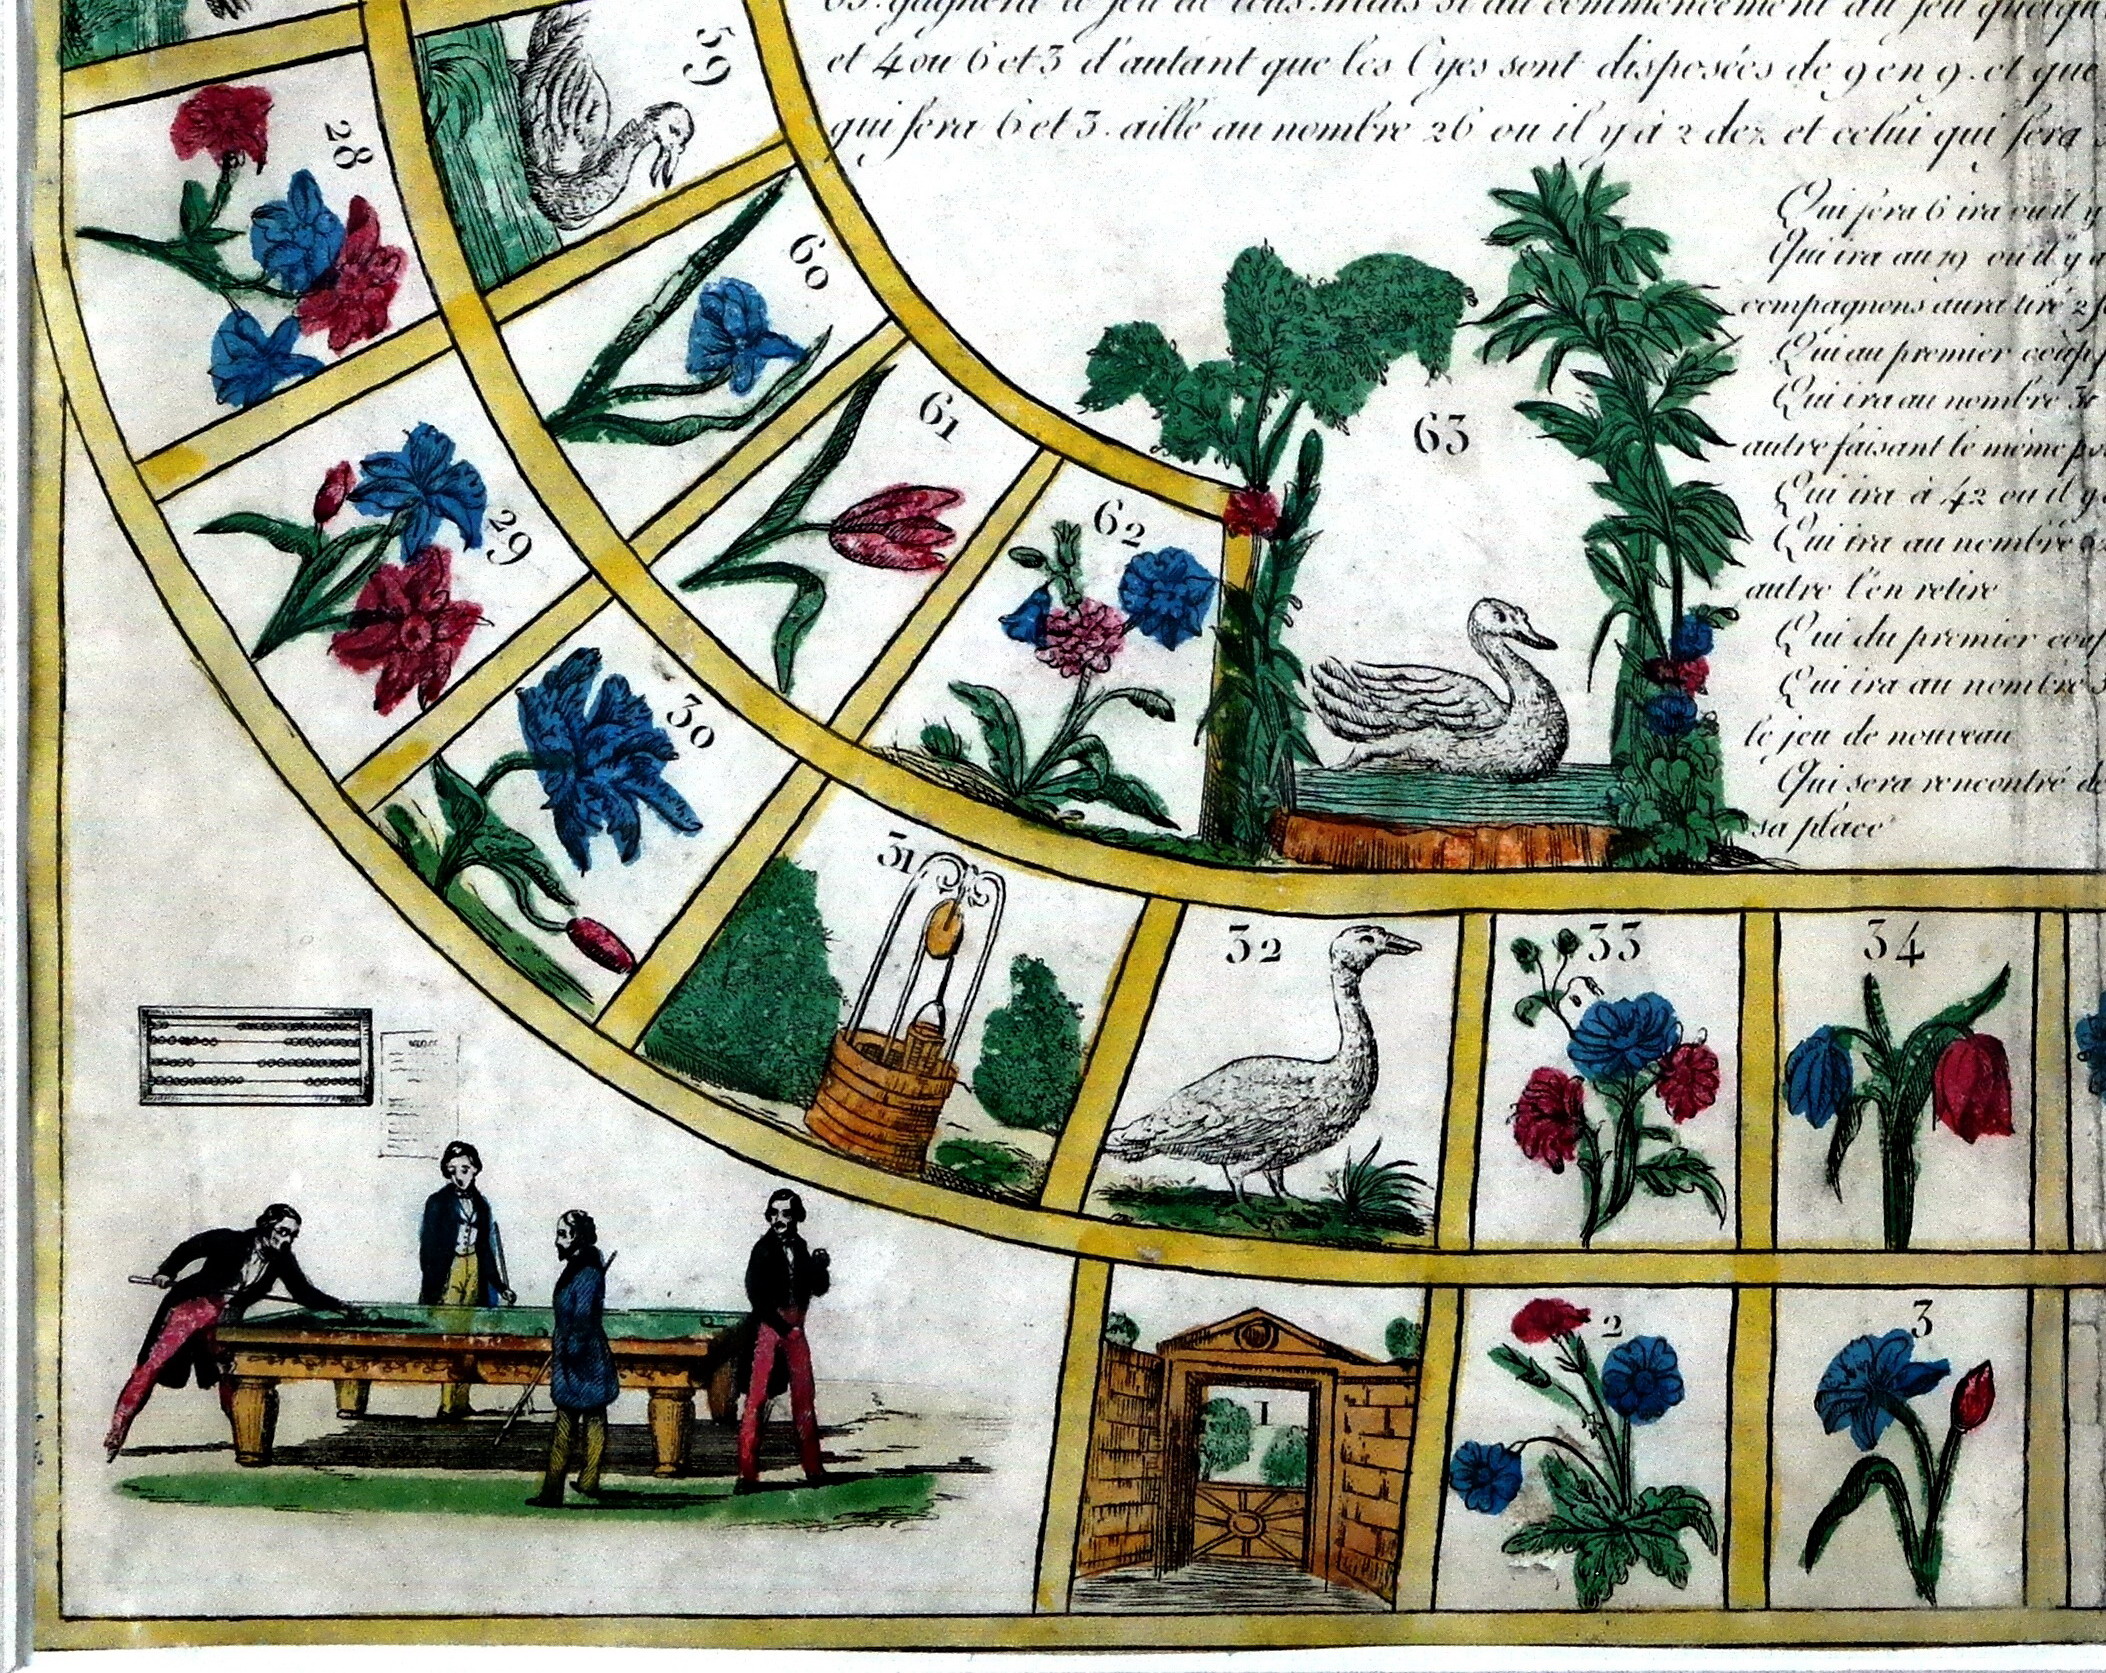 63. gagnera le jeu de tous. mais si au commencement du jeu quelqu
et 4 ou 6 et 3 d'autant que les Oyes sont disposées de 9 en 9. et que
qui fera 6 et 3. aille au nombre 26 ou il y à 2 dez et celui qui fera
Qui fera 6 ira ou il y
Qui ira au 19 ou il y a
compagnons aura tiré 2 f
Qui au premier coup f
Qui ira au nombre 31
autre faisant le même po
Qui ira à 42 ou il y
Qui ira au nombre
autre l'en retire
Qui du premier coup
Qui ira au nombre 5
le jeu de nouveau
Qui sera rencontré de
sa place
59
28
60
61
63
62
29
30
31
32
33
34
1
2
3